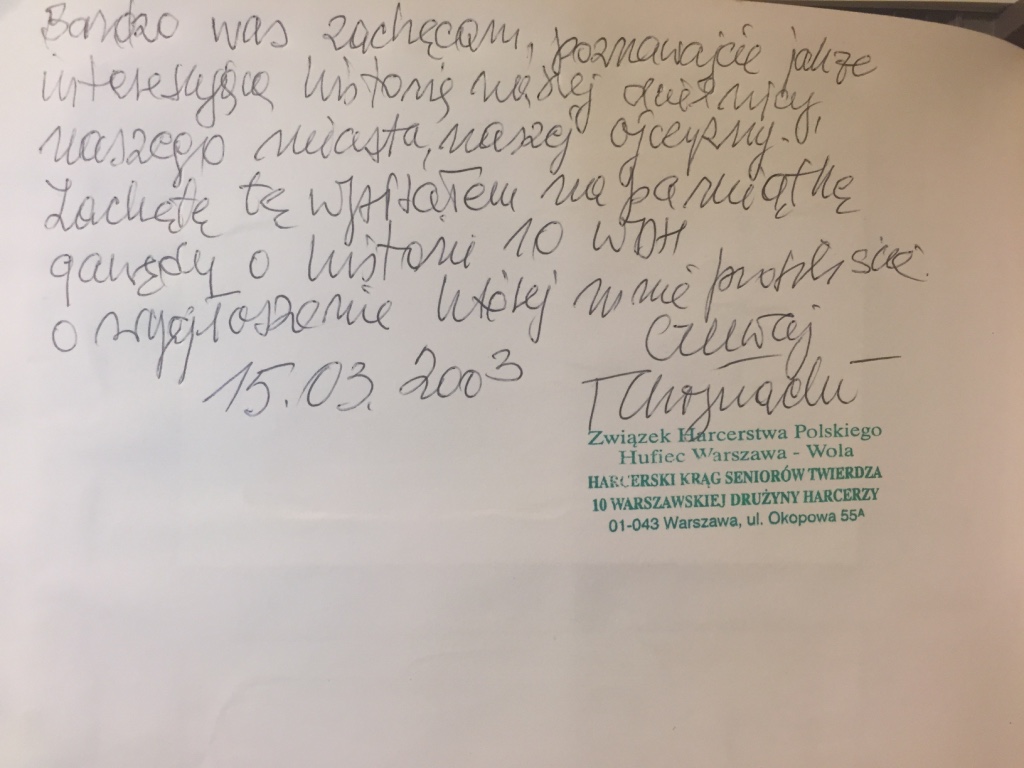 Bardzo was zachęcam, poznawajcie jakże
interesującą historię naszej dzielnicy,
naszego miasta, naszej ojczyzny.
Zachętę tę wpisałem na pamiątkę
gawędy o historii 10 WDH
o wygłoszenie której mnie prosiliście.
Czuwaj
15.03.2003
T Chojnacki
Związek Harcerstwa Polskiego
Hufiec Warszawa - Wola
HARCERSKI KRĄG SENIORÓW TWIERDZA
10 WARSZAWSKIEJ DRUŻYNY HARCERZY
01-043 Warszawa, ul. Okopowa 55A